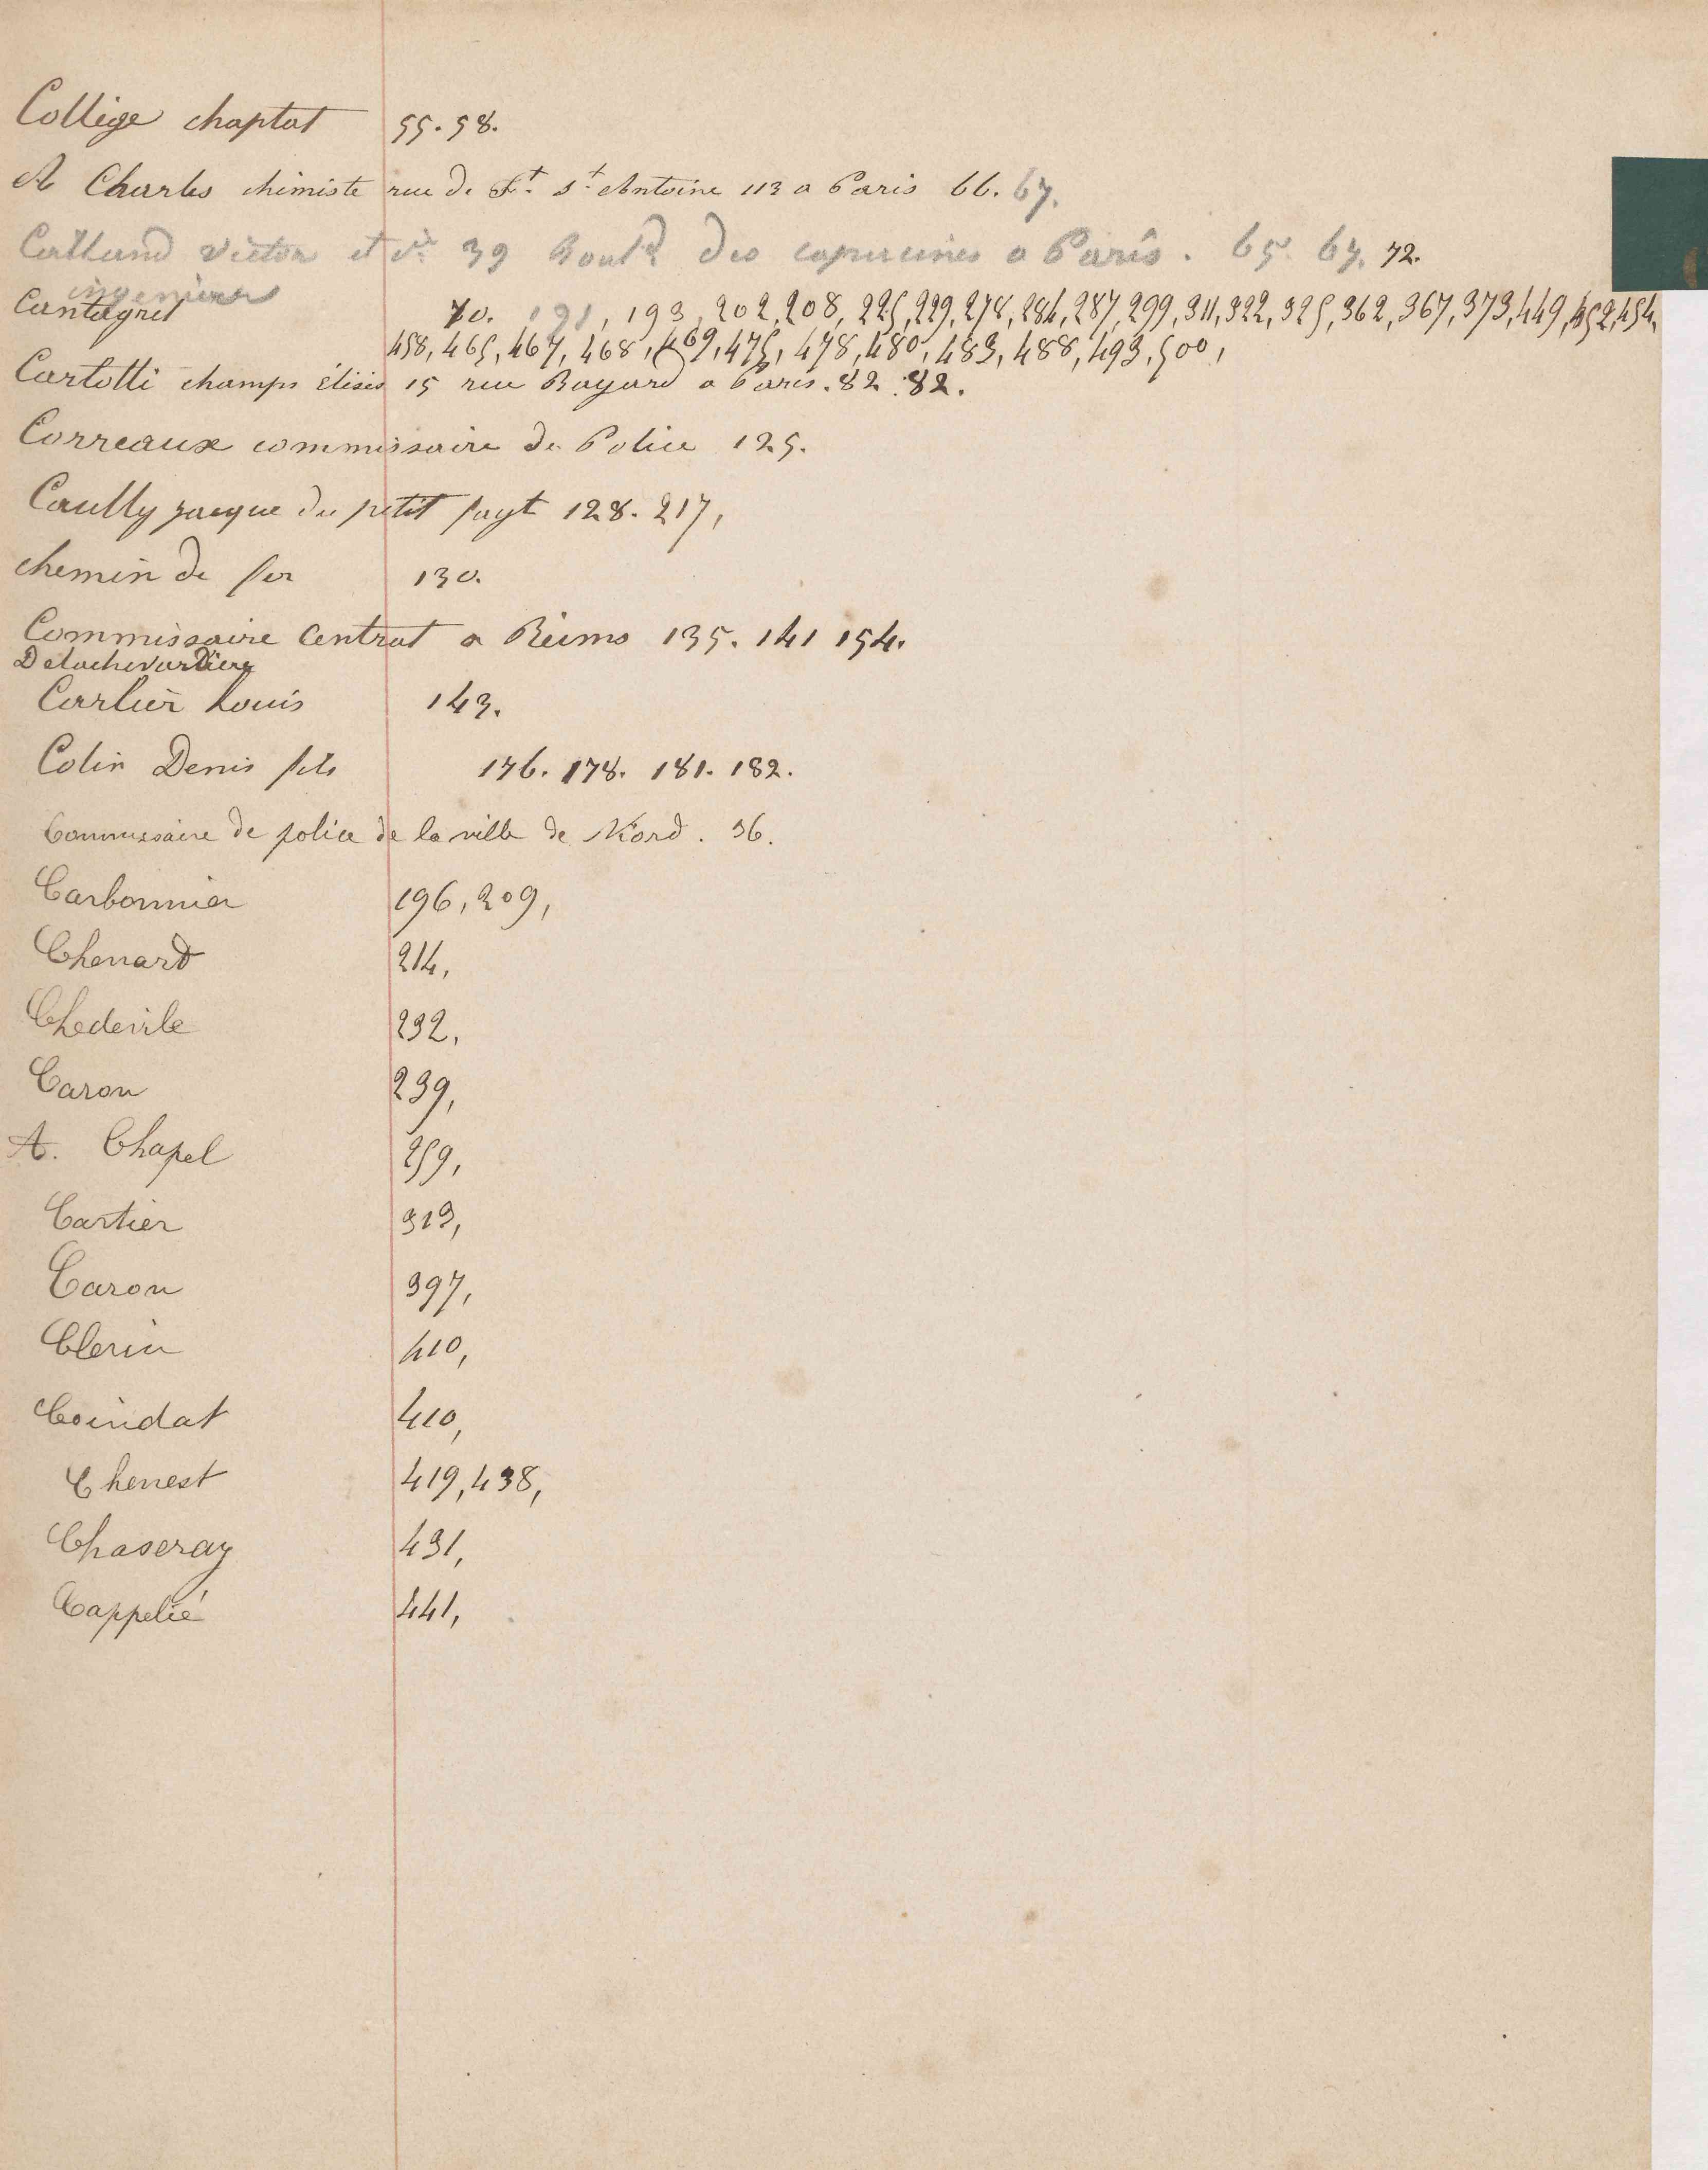 Collège chaptal 55. 58.
A Charles chimiste rue de Ft St Antoine 113 a Paris 66. 67.
Calland victor et Cie 39 Boulrd des capucines a Paris. 65. 67. 72.
ingenieur
Cantagrel 70. 191, 193, 202, 208, 225, 229, 278, 284, 287, 299, 311, 322, 325, 362, 367, 373, 449, 452, 454,
458, 465, 467, 468, 469, 475, 478, 480, 483, 488, 493, 500,
Carlotti champs Élisés 15 rue Bayard a Paris. 82. 82.
Correaux commissaire de Police 125.
Caully jacque du petit fayt 128. 217,
chemin de fer 130.
Commissaire Central a Reims 135. 141 154.
Delachevardiere
Carlier Louis 143.
Colin Denis fils 176. 178. 181. 182.
Commissaire de police de la ville de Nord. 36.
Carbonnier 196, 209,
Chenard 214,
Chedevile 232,
Caron 239,
A. Chapel 259,
Cartier 313,
Caron 397,
Clerin 410,
Coindat 410,
Chenest 419, 438,
Chaseray 431,
Cappelié 441,